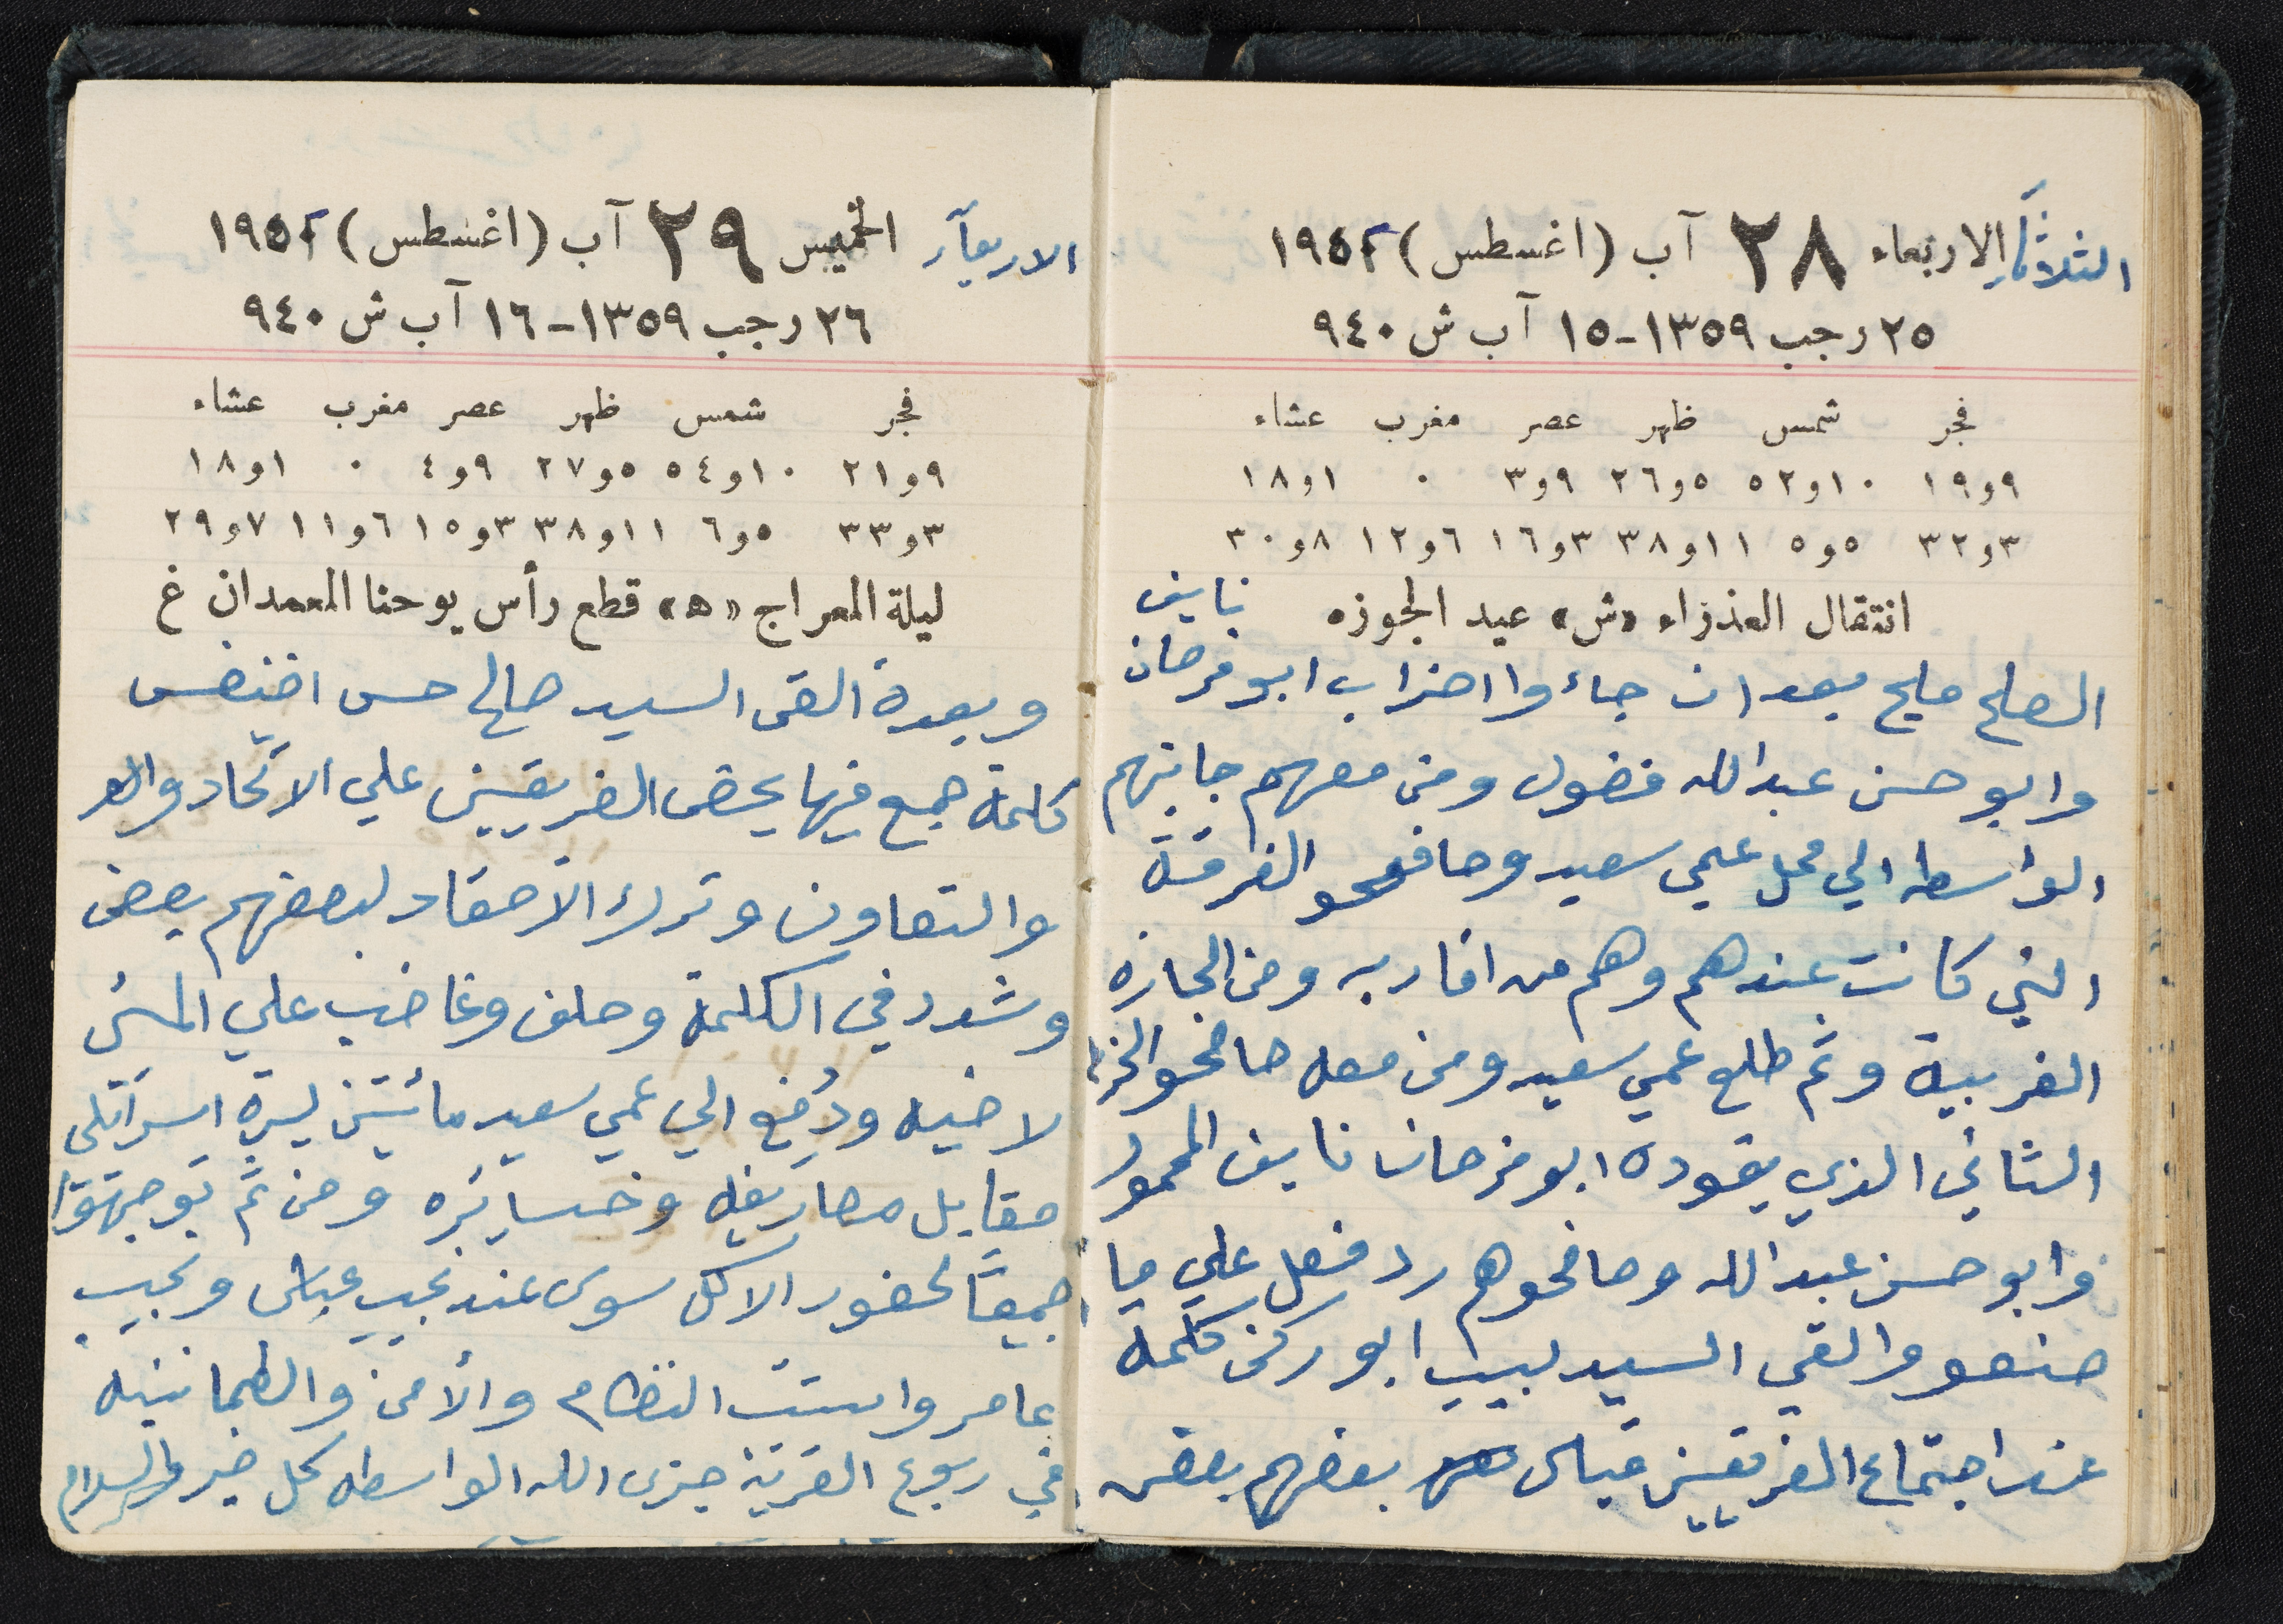 الثلاثاء الاربعاء ٢٨ آب (اغسطس) ١٩٥٢
٢٥ رجب ١٣٥٩-١٥ آب ش ٩٤٠
فجر شمس ظهر عصر مغرب عشاء
٩و١٩ ١٠و٥٢ ٥و٢٦ ٩و٣ ٠ ١و١٨
٣و٣٢ ٥و٥ ١١و٣٨ ٣و١٦ ٦و١٢ ٨و٣٠
انتقال العذراء «ش» عيد الجوزه
نايف
الصلح مليح بعد ان جاءوا احزاب ابو فرحان
وابو حسن عبدالله فضول ومن معهم جابتهم
الواسطه الي محل عمي سعيد وصافحو الفرقة
التي كانت عندهم وهم من اقاربه ومن الجاره
الغربية وثم طلع عمي سعيد ومن معه صافحو
الثاني الذي يقوده ابو فرحان نايف المحمود
وابو حسن عبدالله وصافحوهم رد فعل علي ما
صنعو والقي السيد لبيب ابو ركن كلمة
عند اجتماع الفريقين قبال بعضهم بعض
الاربعآء الخميس ٢٩ آب (اغسطس) ١٩٥٢
٢٦ رجب ١٣٥٩-١٦ آب ش ٩٤٠
فجر شمس ظهر عصر مغرب عشاء
٩و٢١ ١٠و٥٤ ٥و٢٧ ٩و٤ ٠ ١و١٨
٣و٣٣ ٥و٦ ١١و٣٨ ٣و١٥ ٦و١١ ٧و٢٩
ليلة المعراج «ه» قطع رأس يوحنا المعمدان غ
وبعدة القى السيد صالح حسن اخنيفس
كلمة جمع فيها يحض الفريقين علي الاتحاد
والتعاون وترك الاحقاد لبعضهم بعض
وشدد في الكلمة وحلف وغاضب علي
لاخيه ودُفع الي عمي سعيد مائتين ليرة اسرائلي
مقابل مصاريفه وخسايره ومن ثم توجهوا
جميعاً لحضور الاكل سوى عند نجيب عباس ونجيب
عامر واستتب النظام والأمن والطمانينه
في ربوع القرية جزى الله الواسطه كل خير والسلام